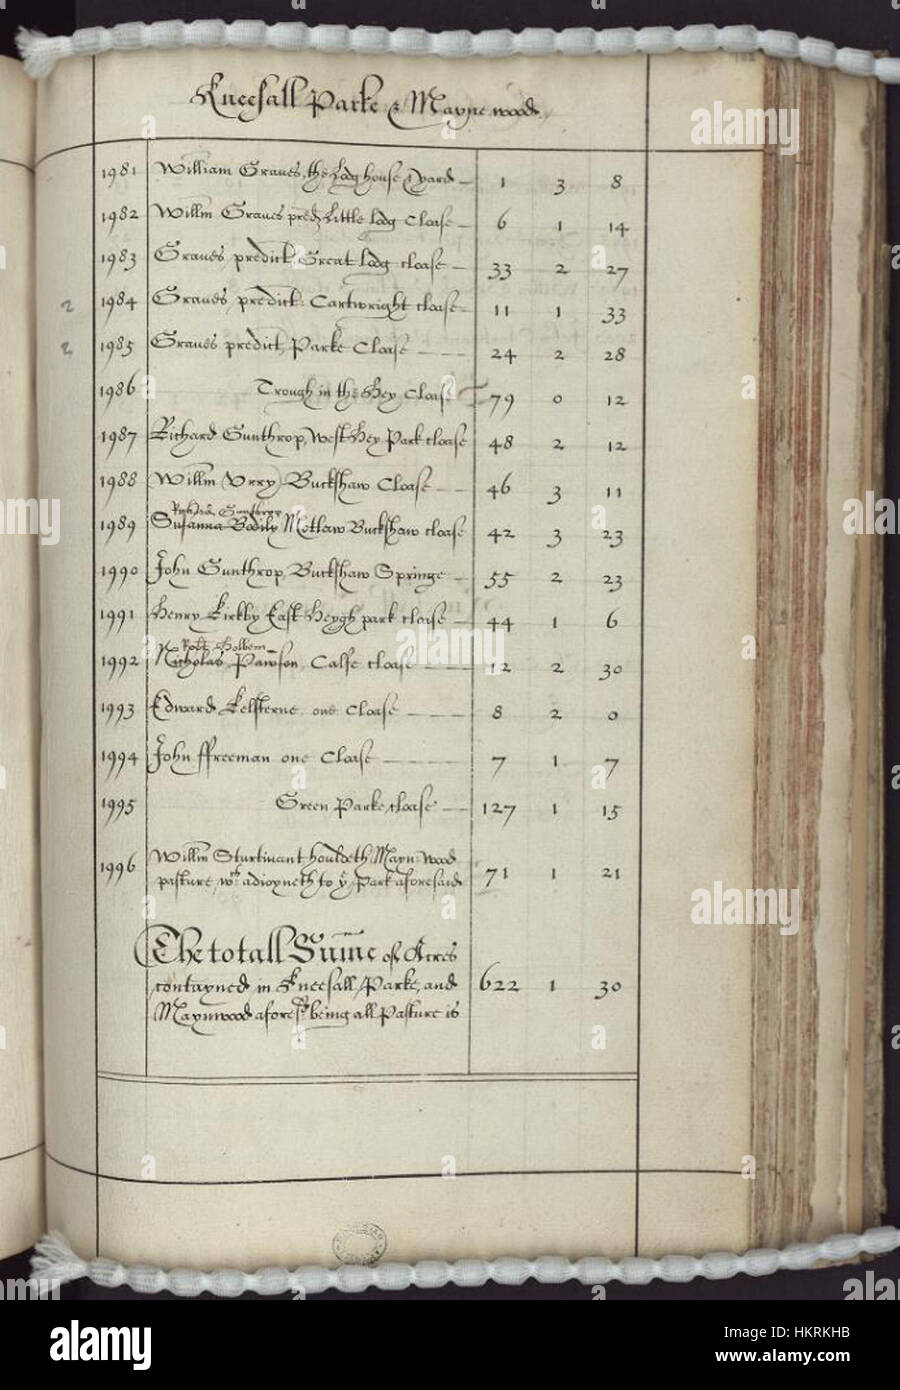 Kneesall Parke & Mayne wood
1981 William Graues, the Lodg house & yard 1 3 8
1982 Willm Graues pred: Little lodg Close 6 1 14
1983 Graues predict, Great Lodg close 33 2 27
2 1984 Graues predick: Cartwright close 11 1 33
2 1985 Graues predict, Parke Close 24 2 28
1986 Trough in the Hey Close 79 0 12
1987 Richard Gunthrop, West Hey Park close 48 2 12
1988 Willm Vrry Buckshaw Close 46 3 11
Richard Gunthrop
1989 Susanna Bodily Motlaw Buckshaw close 42 3 23
1990 John Gunthrop, Buckshaw Springe 55 2 23
1991 Henry Kirkby East Heygh park close 44 1 6
Robt Holbem
1992 Nicholas Pawson, Calfe close 12 2 30
1993 Edward Kelsterne one Close 8 2 0
1994 John ffreeman one Close 7 1 7
1995 Green Parke close 127 1 15
1996 Willm Sturtiuant houldeth Mayn-wood
pasture, wch adioyneth to ye Park aforesaid 71 1 21
The totall Sum̄e of Acres
contayned in Kneesall Parke, and 622 1 30
Maynwood aforesd being all Pasture is
alamy
Image ID: HKRKHB
www.alamy.com